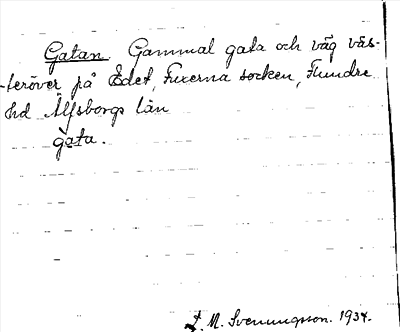 Gatan. Gammal gata och väg väs-
teröver på Edet, Fuxerna socken, Flundre
hd Älfsborgs län
gata.
L. M. Svenungsson. 1934.